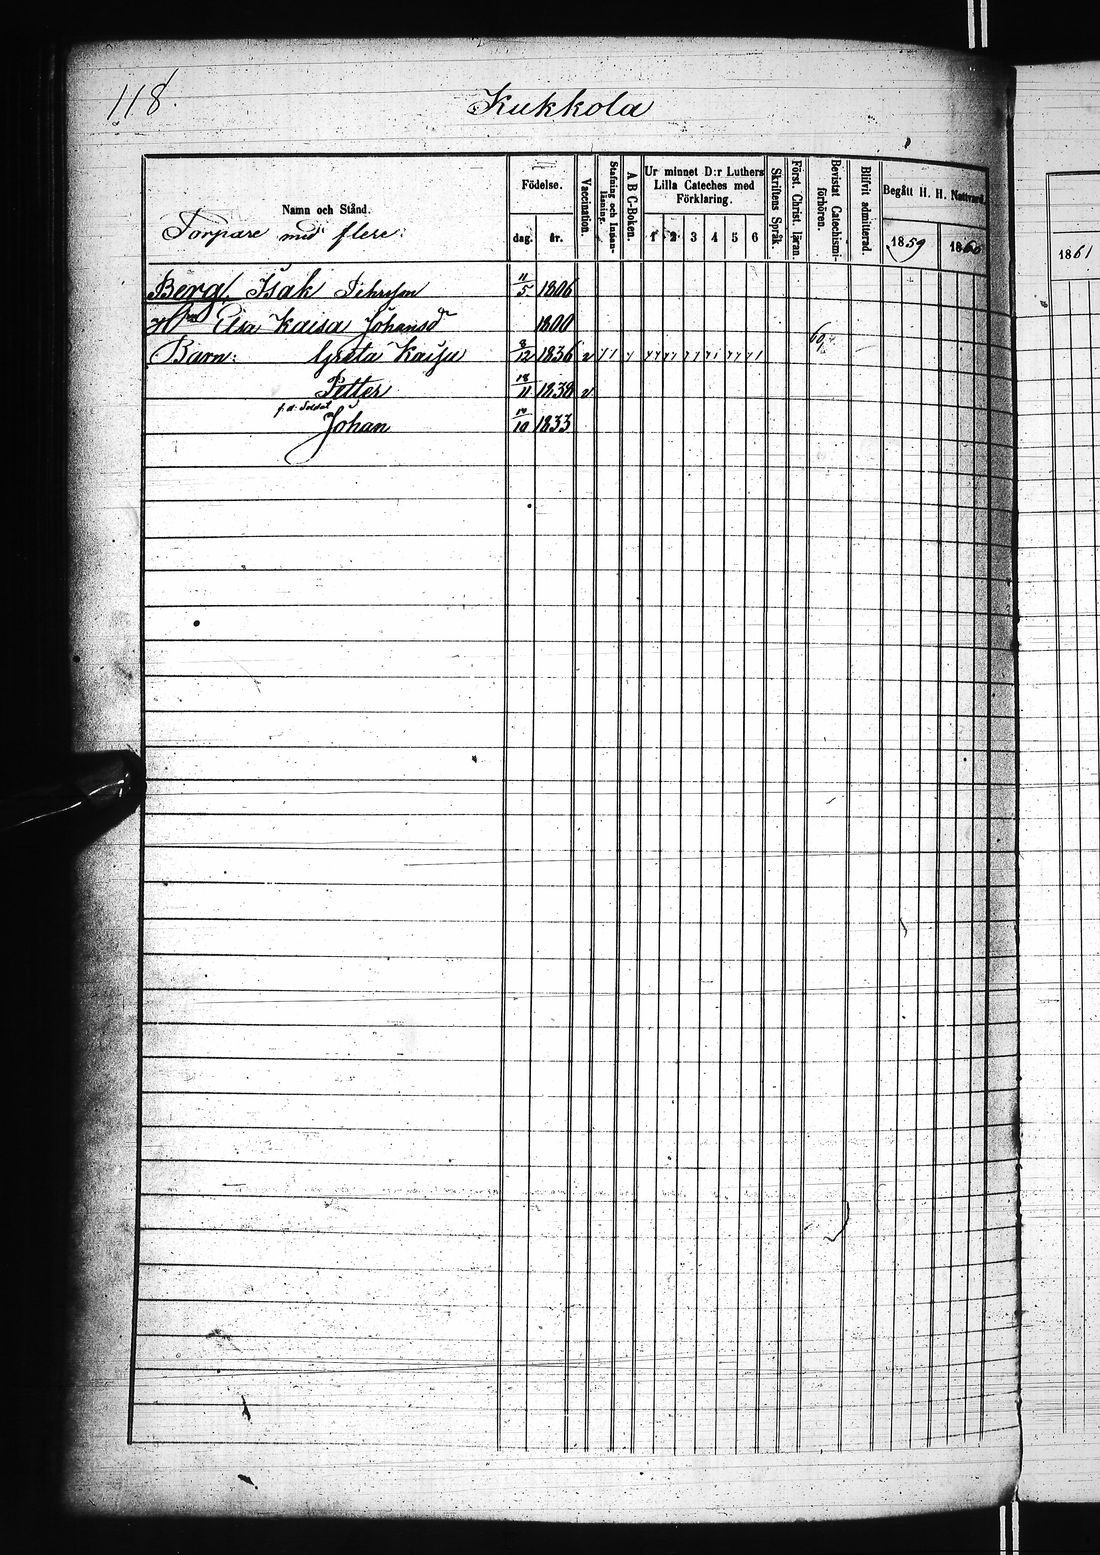 118.
Kukkola
Namn och Stånd.
Torpare med flere:
Födelse.
dag. år.
Vaccination.
Stafning och Innan-läsning.
A B C-Boken.
Ur minnet D:r Luthers
Lilla Cateches med
Förklaring.
1 2 3 4 5 6
Skriftens Språk.
Först. Christ. läran.
Bevistat Catechismi-förhören.
Blifvit admitterad.
Begått H. H. Nattvard.
1859 1860
1861
Berg, Isak 11/5 1806
Hu Elsa Kaisa Johansd 1800
Barn: Greta Kaisa 8/12 1836 v 60
Petter 18/11 1838 v
f.d. Soldat
Johan 10 1833